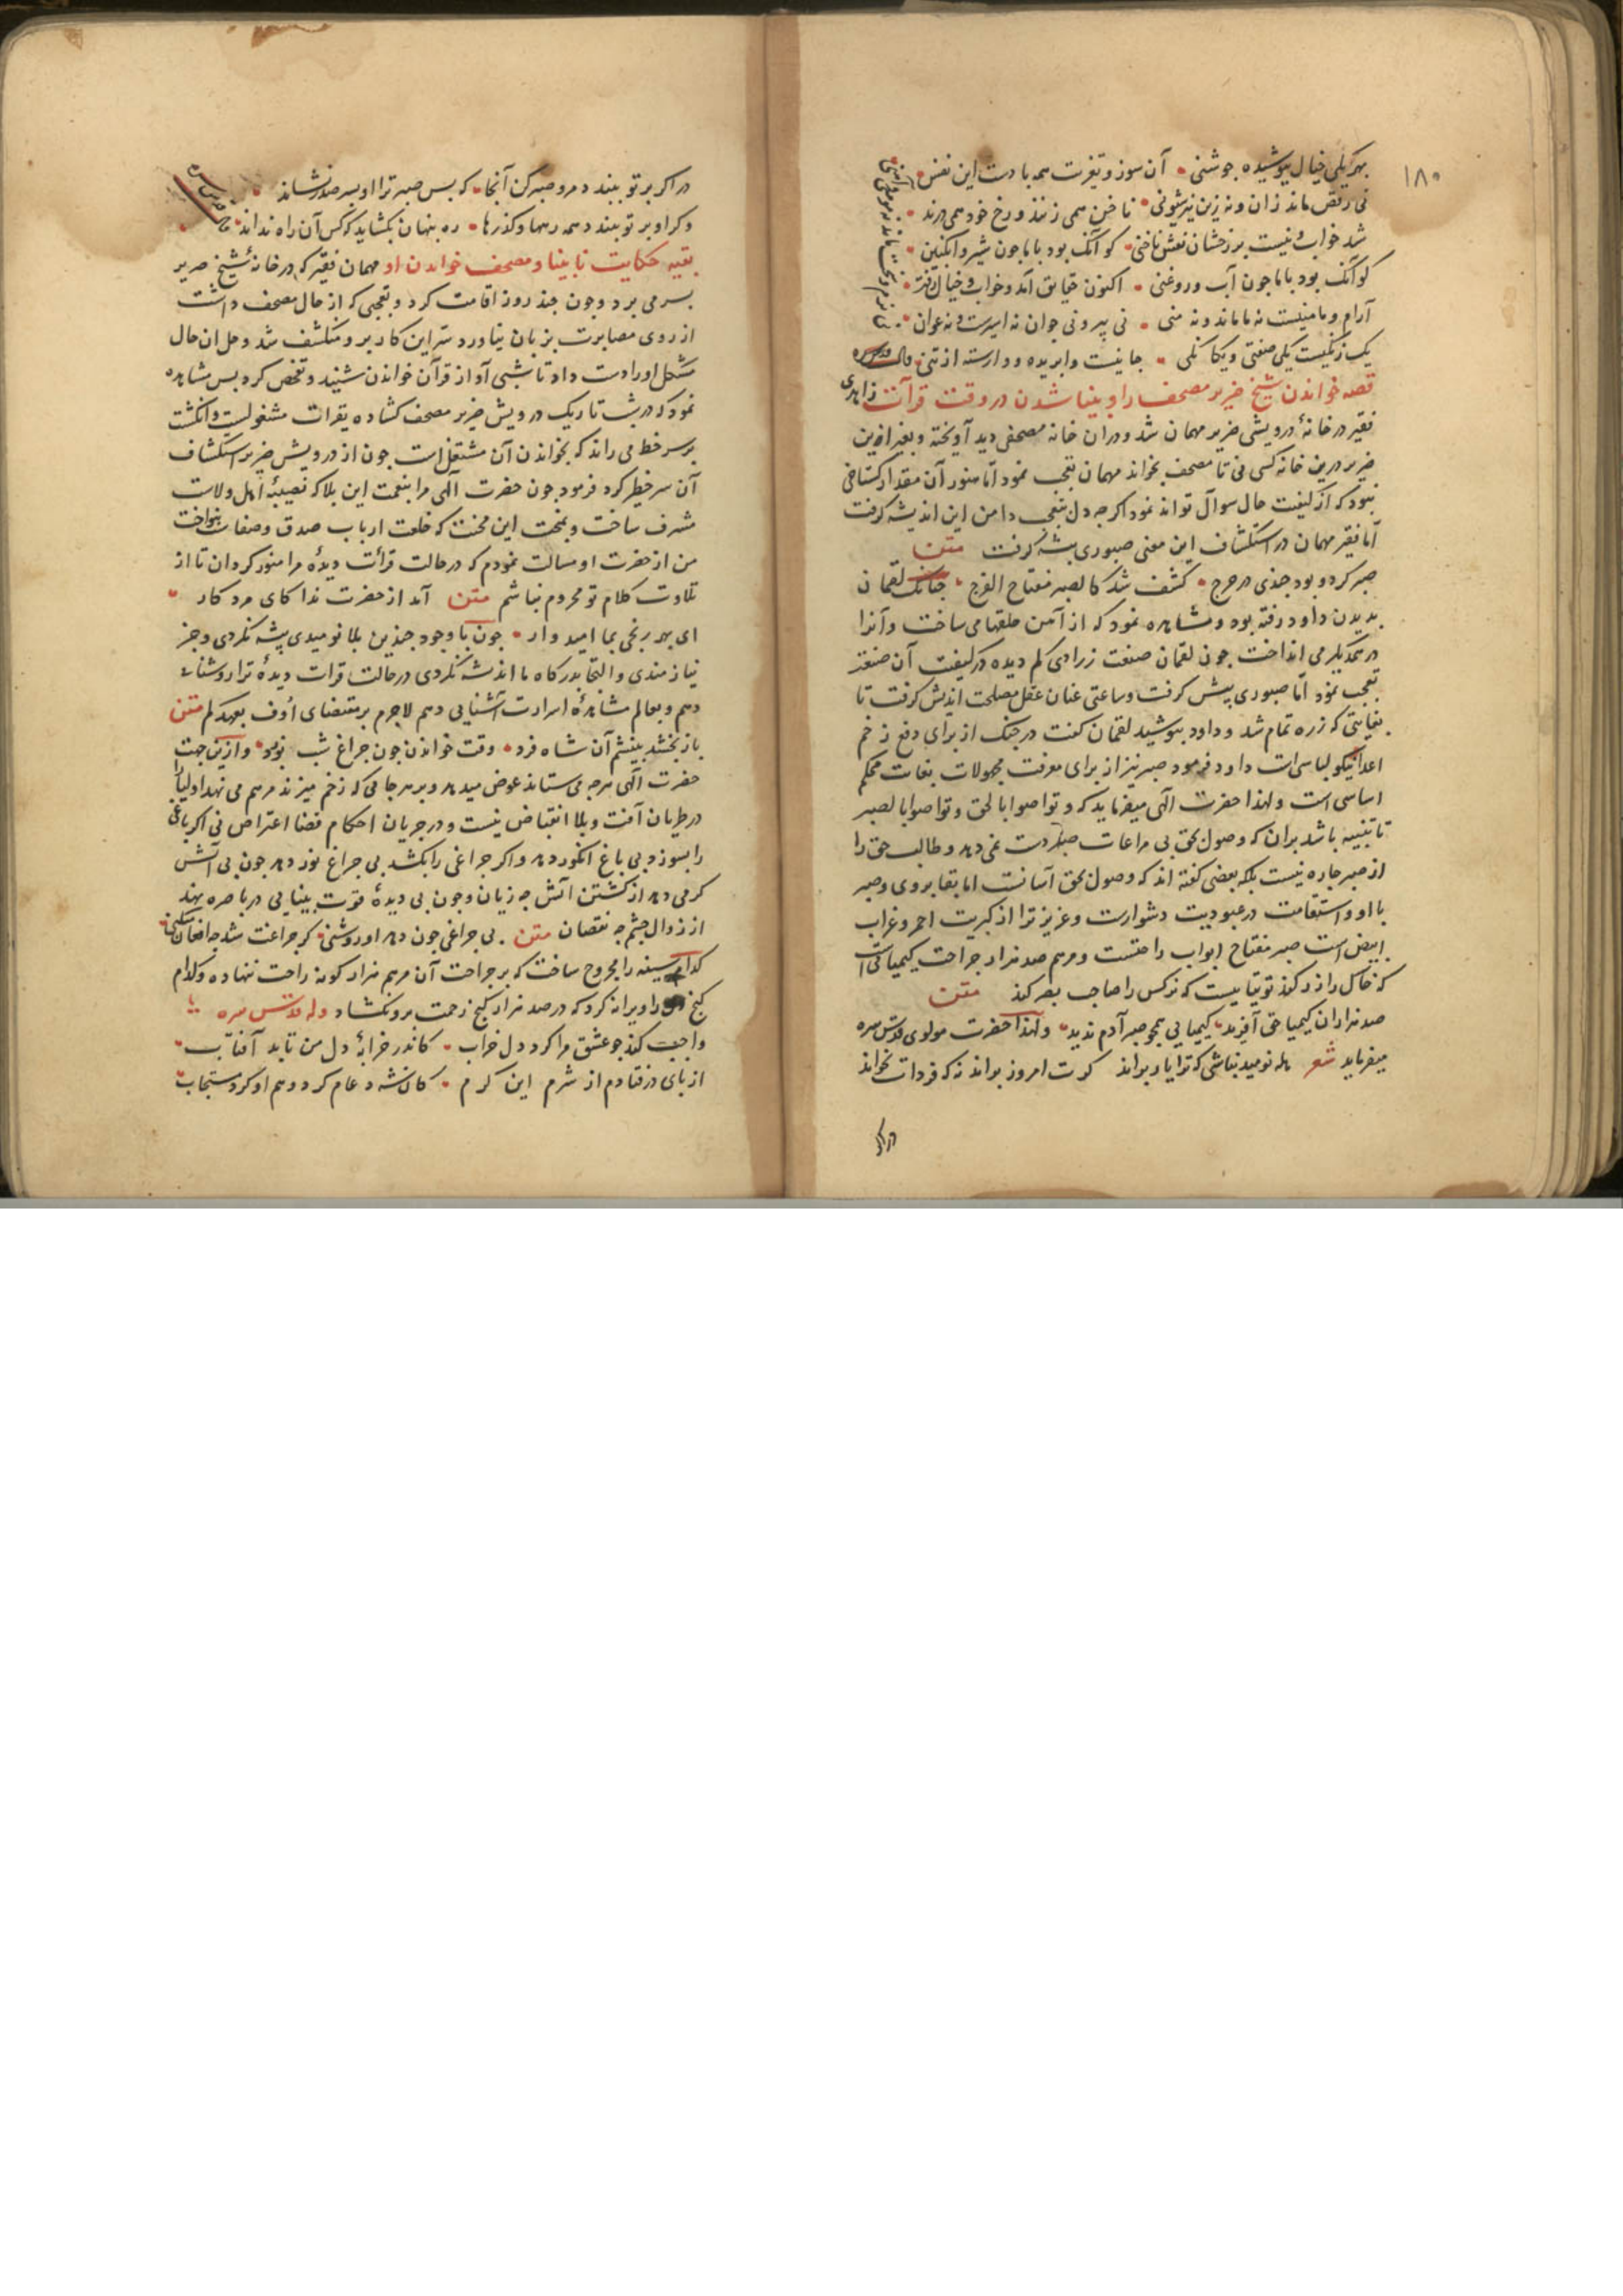 ۱۸۰
بهر یکی خیال پوشیده جوشنی آن سوز و تعزیت همه بادست این نفس
نی رقص ماند زان و نه زین نیز شیونی ناخن همی زنند و رخ خود همی درند
شد خواب و نیست بر رخشان نقش ناخنی کو آنک بود با ما چون شیر و انگبین
کو آنک بود با ما چون آب و روغنی اکنون حقایق آمد و خواب و خیال رفت
آرام و مامنیست نه ما ماند و نه منی نی پیر و نی جوان نه اسیرست و نه عوان
یک رنگیست یکی صفتی و یکانکی جانیست وابریده و وارسته از تنی
قصه خواندن شیخ ضریر مصحف را و بینا شدن در وقت قرآت زاهدی
فقیر در خانهٔ درویشی ضریر مهمان شد و در ان خانه مصحفی دید آویخته و بغیر از ین
ضریر درین خانه کسی نی تا مصحف بخواند مهمان تعجب نمود اما هنوز آن مقدار کستاخی
نبود که از کیفیت حال سوال تواند نمود اکرچه دل تعجب دامن این اندیشه کرفت
اما فقیر مهمان در استکشاف این معنی صبوری پیشه کرفت متن
صبر کرد و بود چندی در حرج کشف شد کالصبر مفتاح الفرج چنانک لقمان
بدیدن داود رفته بود و مشاهده نمود که از آهن حلقها می ساخت و آنرا
در همدیکر می انداخت چون لقمان صنعت زرادی کم دیده در کیفیت آن صنعت
تعجب نمود اما صبوری پیش کرفت و ساعتی عنان عقل مصلحت اندیش کرفت تا
بغایتی که زره تمام شد و داود بپوشید لقمان کفت در جنک از برای دفع زخم
اعدا نیکو لباسی است داود فرمود صبر نیز از برای معرفت مجهولات بغایت محکم
اساسی است و لهذا حضرت الهی میفرماید که و تواصوا بالحق و تواصوا بالصبر
تا تنبیه باشد بران که وصول بحق بی مراعات صبر دست نمی دهد و طالب حق را
از صبر چاره نیست بلکه بعضی کفته اند که وصول بحق آسانست اما بقا بر وی و صبر
با او و استقامت در عبودیت دشوارست و عزیز تر از کبریت احمر و غراب
ابیض است صبر مفتاح ابواب راحتست و مرهم صد هزار جراحت کیمیائی است
که خاک را زر کند توتیاییست که نرکس را صاحب بصر کند متن
صد هزاران کیمیا حق آفرید کیمیایی همچو صبر آدم ندید و لهذا حضرت مولوی قدس سره
میفرماید شعر هله نومید نباشی که ترا یار براند کرت امروز براند نه که فردات بخواند
در اکر
در اکر بر تو ببندد مرو صبر کن آنجا که پس صبر ترا او بسر صدر نشاند
و کر او بر تو ببندد همه رهها و کذرها ره پنهان بکشاید که کس آن راه نداند
بقیه حکایت نابینا و مصحف خواندن او مهمان فقیر که در خانهٔ شیخ ضریر
بسر می برد و چون چند روز اقامت کرد و تعجبی که از حال مصحف داشت
از روی مصابرت بزبان نیاورد سر این کار برو منکشف شد و حل ان حال
مشکل اورا دست داد تا شبی آواز قرآن خواندن شنید و تفحص کرد پس مشاهده
نمود که در شب تاریک درویش ضریر مصحف کشاده بقرات مشغولیست و انکشت
بر سر خط می راند که بخواندن آن مشتغل است چون از درویش ضریر استکشاف
آن سر خطیر کرد فرمود چون حضرت الهی مرا بنعمت این بلا که نصیبهٔ اهل ولاست
مشرف ساخت و بخلعت این محنت که خلعت ارباب صدق و صفاست بنواخت
من از حضرت او مسالت نمودم که در حالت قرائت دیدهٔ مرا منور کردان تا از
تلاوت کلام تو محروم نباشم متن آمد از حضرت ندا کای مرد کار
ای بهر رنجی بما امیدوار چون با وجود چندین بلا نومیدی پیشه نکردی و جز
نیازمندی و التجا بدرکاه ما اندیشه نکردی در حالت قرات دیدهٔ ترا روشنائ
دهم و بعالم مشاهدهٔ اسرارت آشنایی دهم لاجرم بر مقتضای اوف بعهدکم متن
باز بخشد بینشم آن شاه فرد وقت خواندن چون چراغ شب نورد و ازین جهت
حضرت الهی هرچه می ستاند عوض میدهد و بر هر جا می که زخم میزند مرهم می نهد اولیا را
در طریان آفت و بلا انقباض نیست و در جریان احکام قضا اعتراض نی اکر باغی
را بسوزد بی باغ انکور دهد و اکر چراغی را بکشد بی چراغ نور دهد چون بی آتش
کرمی دهد از کشتن آتش چه زیان و چون بی دیدهٔ قوت بینایی در باصره نهد
از زوال چشم چه نقصان متن بی چراغی چون دهد او روشنی کر چراغت شد چه افغان میکنی
کدام سینه را مجروح ساخت که بر جراحت آن مرهم هزار کونه راحت ننهاده و کدام
کنج را ویرانه کرد که در صد هزار کنج رحمت برو نکشاد وله قدس سره
واجب کند چو عشق مرا کرد دل خراب کاندر خرابهٔ دل من تابد آفتاب
از پای در فتادم از شرم این کرم کان شه دعام کرد و هم او کرد مستجاب